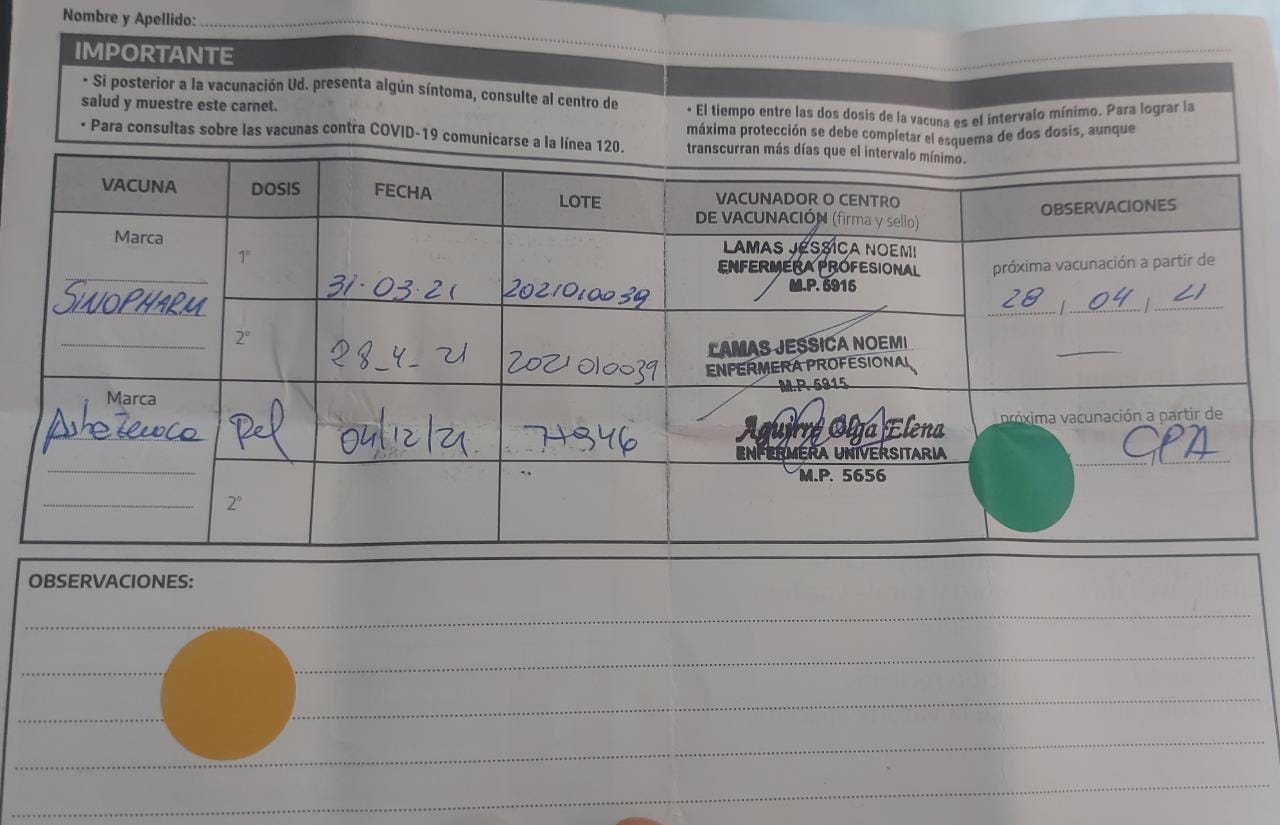 Nombre y Apellido:
IMPORTANTE
• Si posterior a la vacunación Ud. presenta algún síntoma, consulte al centro de
salud y muestre este carnet.
• Para consultas sobre las vacunas contra COVID-19 comunicarse a la línea 120.
• El tiempo entre las dos dosis de la vacuna es el intervalo mínimo. Para lograr la
máxima protección se debe completar el esquema de dos dosis, aunque
transcurran más días que el intervalo mínimo.
VACUNA DOSIS FECHA LOTE VACUNADOR O CENTRO DE VACUNACIÓN (firma y sello) OBSERVACIONES
Marca
SINOPHARM
1° 31-03-21 2021010039
LAMAS JESSICA NOEMI
ENFERMERA PROFESIONAL
M.P. 5915
próxima vacunación a partir de
28 / 04 / 21
2° 28_4_21 2021010039
LAMAS JESSICA NOEMI
ENFERMERA PROFESIONAL
M.P. 5915
Marca
Ref 04/12/21
Aguirre Olga Elena
ENFERMERA UNIVERSITARIA
M.P. 5656
próxima vacunación a partir de
CPA
2°
OBSERVACIONES: